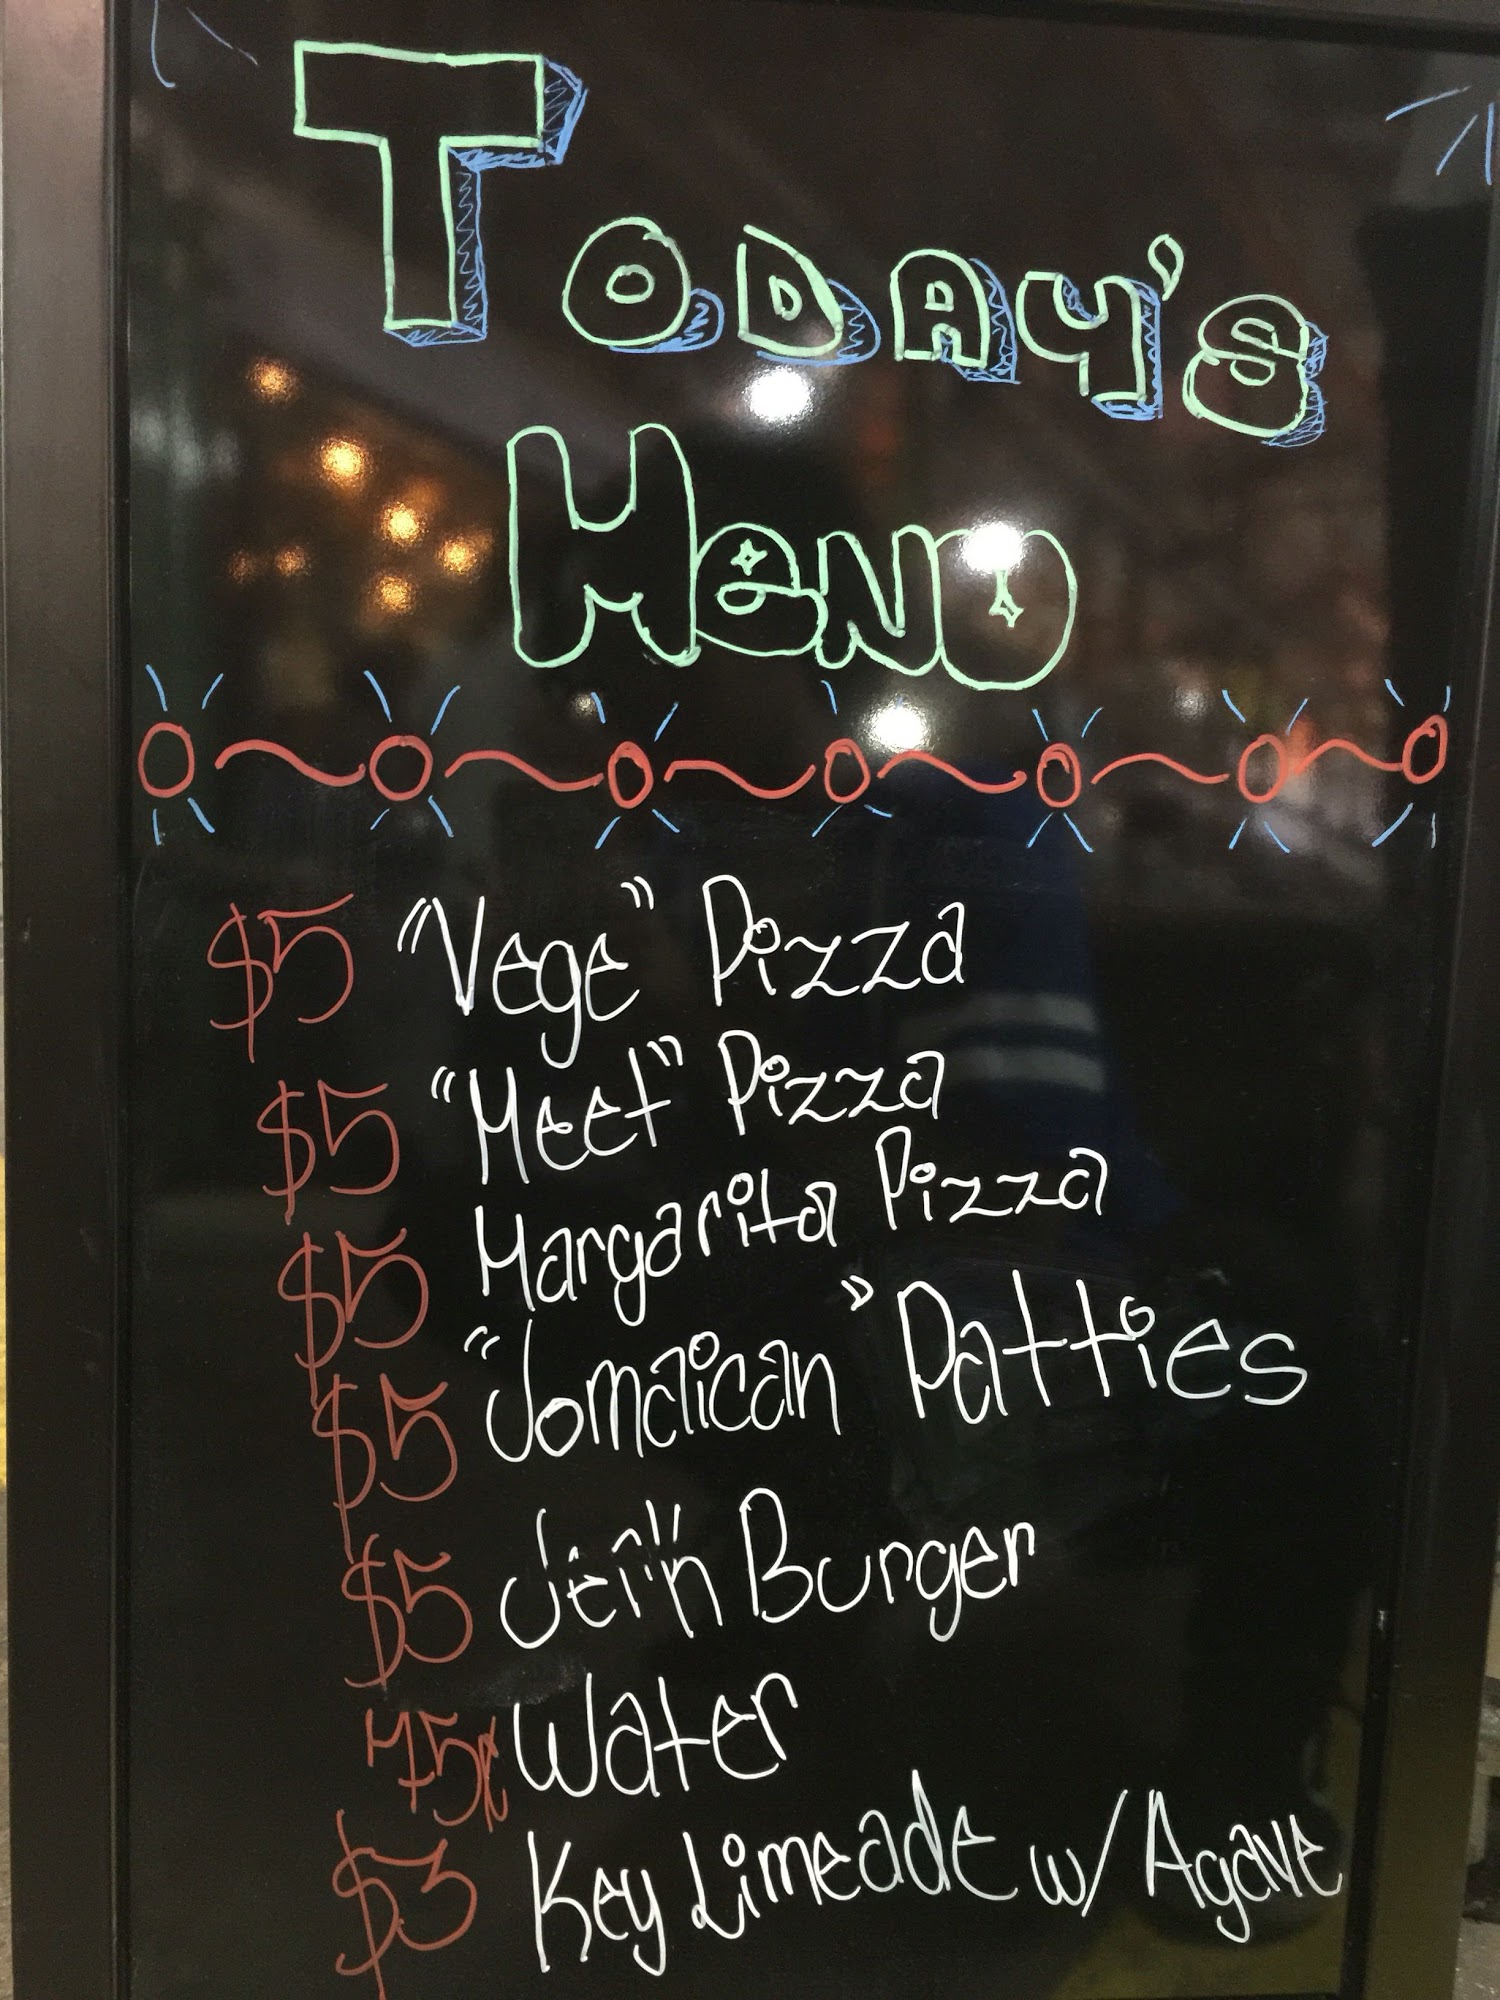 Today's
Menu
$5 "Vege" Pizza
$5 "Meet" Pizza
$5 Margarita Pizza
$5 "Jomaican" Patties
$5 Jerk Burger
75¢ Water
$3 Key Limeade w/ Agave